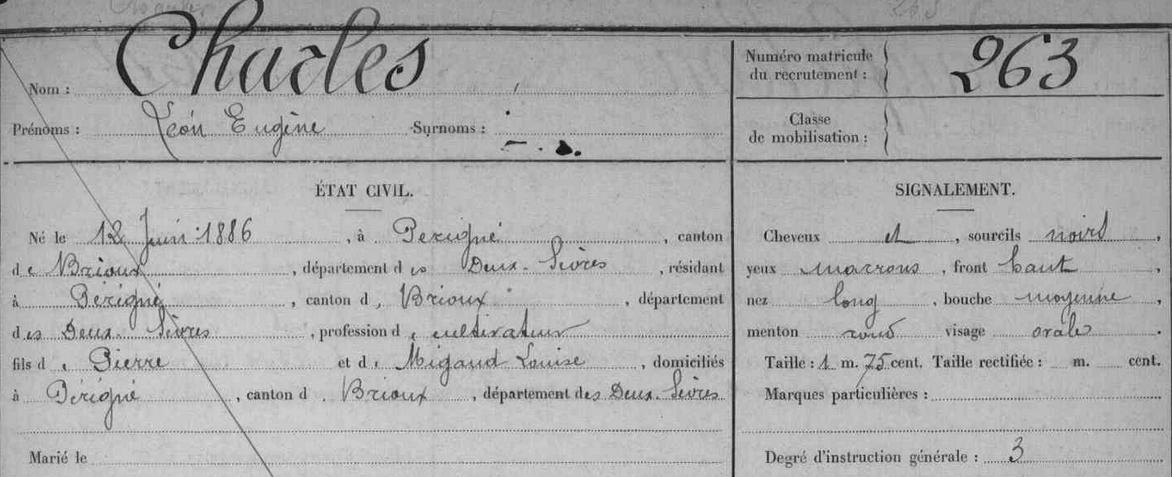 Nom : Charles
Prénoms : Léon Eugène Surnoms :
Numéro matricule du recrutement : 263
Classe de mobilisation :
ÉTAT CIVIL.
Né le 12 Juin 1886, à Périgné, canton
de Brioux, département des Deux-Sèvres, résidant
à Périgné, canton d, Brioux, département
des Deux-Sèvres, profession de cultivateur
fils de Pierre et de Migaud Louise, domiciliés
à Périgné, canton d Brioux, département des Deux-Sèvres
Marié le
SIGNALEMENT.
Cheveux et, sourcils noirs,
yeux marrons, front haut,
nez long, bouche moyenne,
menton rond visage ovale.
Taille : 1 m. 75 cent. Taille rectifiée : m. cent.
Marques particulières :
Degré d'instruction générale : 3